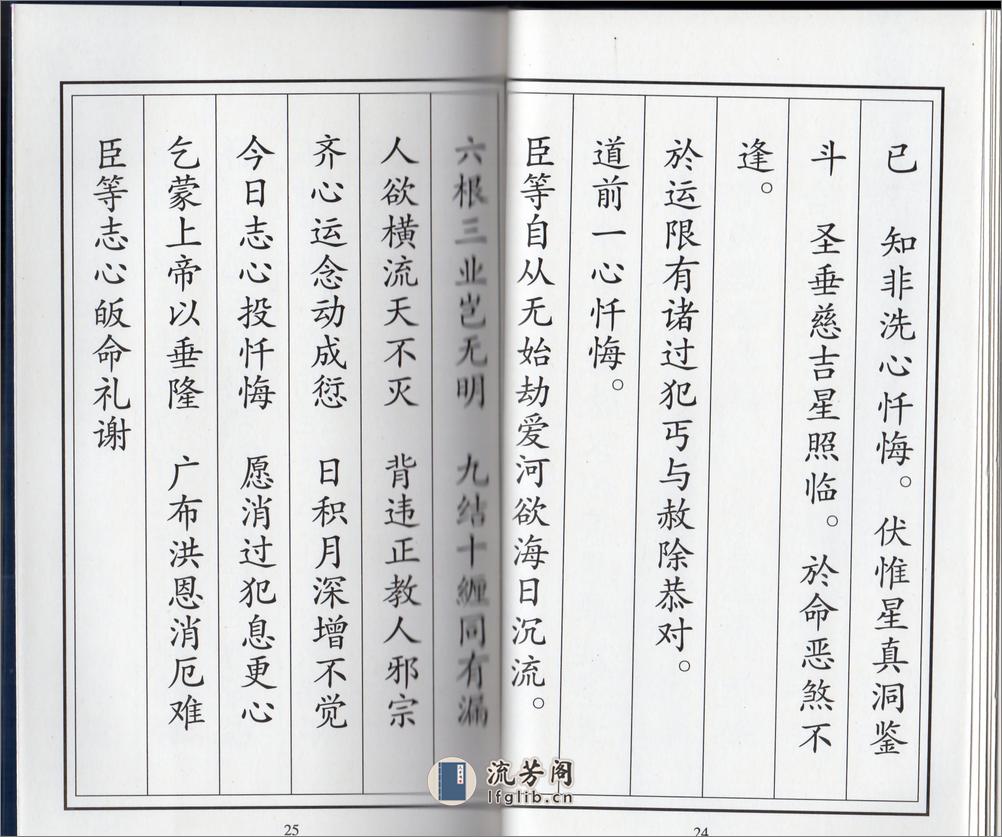 已　知非洗心忏悔。伏惟星真洞鉴
斗　圣垂慈吉星照临。於命恶煞不
逢。
於运限有诸过犯丐与赦除恭对。
道前一心忏悔。
臣等自从无始劫爱河欲海日沉流。
六根三业岂无明　九结十缠同有漏
人欲横流天不灭　背违正教人邪宗
齐心运念动成愆　日积月深增不觉
今日志心投忏悔　愿消过犯息更心
乞蒙上帝以垂隆　广布洪恩消厄难
臣等志心皈命礼谢
24
25
流芳阁
lfglib.cn